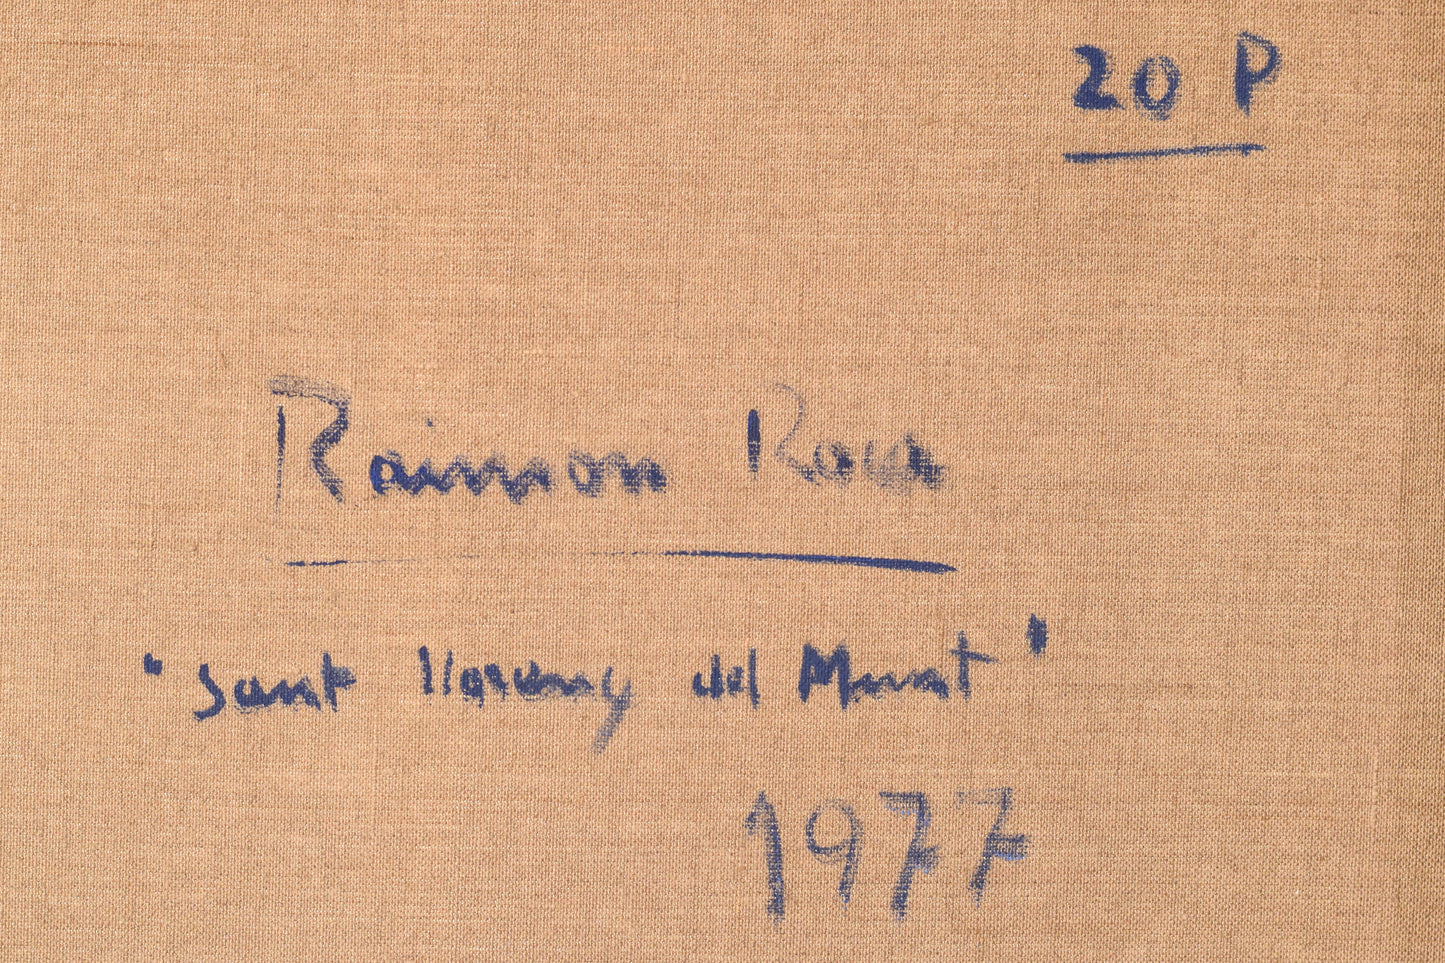 20 P
Raimon Roca
"Sant Llorenç del Munt"
1977